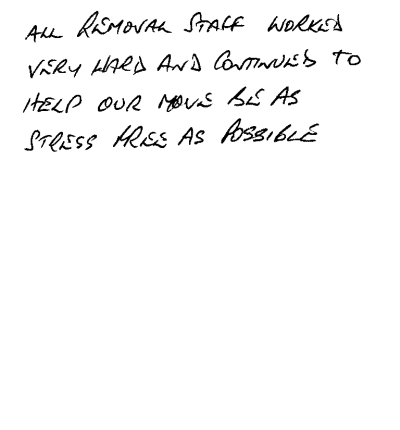 ALL REMOVAL STAFF WORKED
VERY HARD AND CONTINUED TO
HELP OUR MOVE BE AS
STRESS FREE AS POSSIBLE